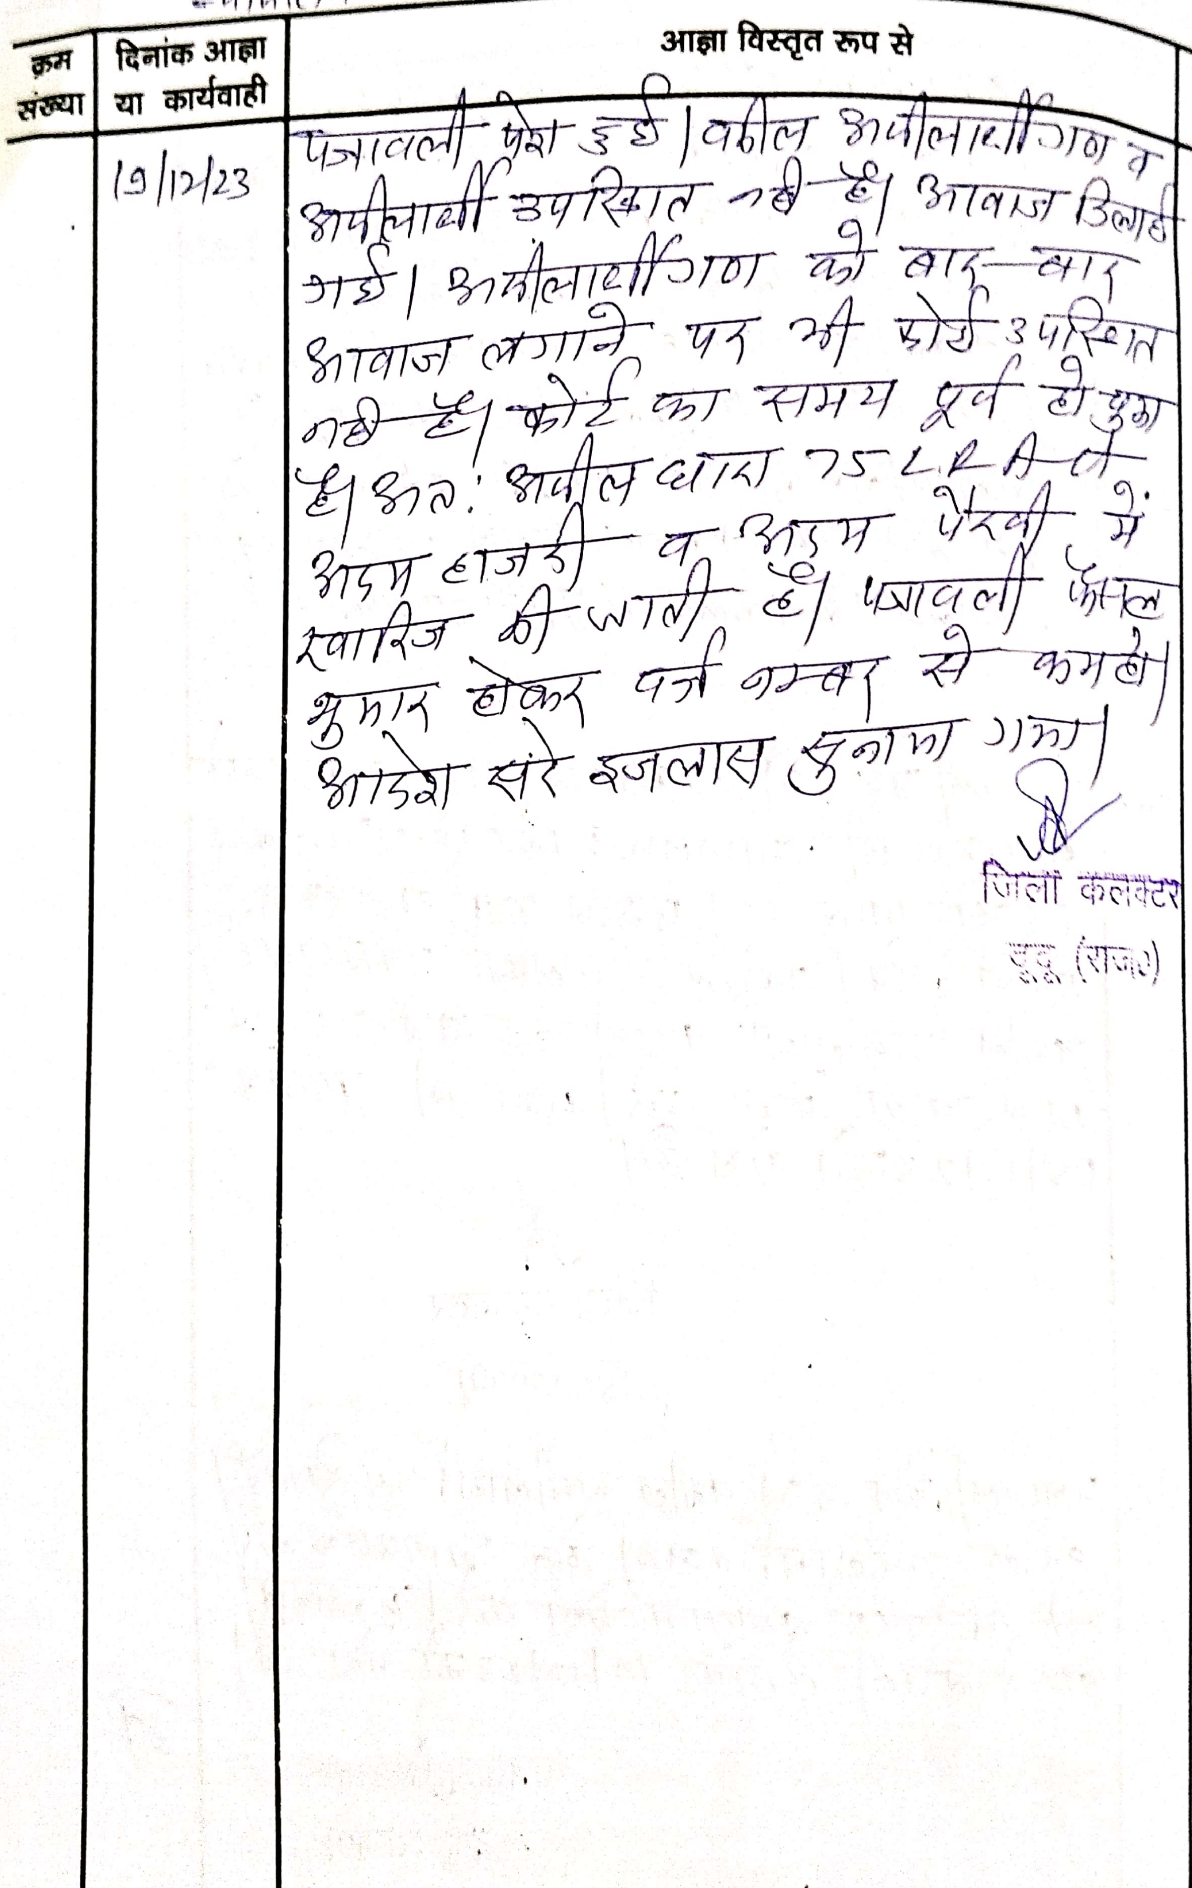 क्रम संख्या
दिनांक आज्ञा या कार्यवाही
आज्ञा विस्तृत रूप से
19/12/23
पत्रावली पेश हुई। वकील अपीलार्थीगण व
अपीलार्थी उपस्थित नही है। आवाज दिलाई
गई। अपीलार्थीगण को बार-बार
आवाज लगाने पर भी कोई उपस्थित
नही है। कोर्ट का समय पूर्व हो चुका
है। अतः अपील धारा 75 L R A
अदम हाजरी व अदम पैरवी में
खारिज की जाती है। पत्रावली फैसल
शुमार होकर दर्ज नम्बर से कम हो।
आदेश सरे इजलास सुनाया गया।
जिला कलक्टर
दूदू (राज०)